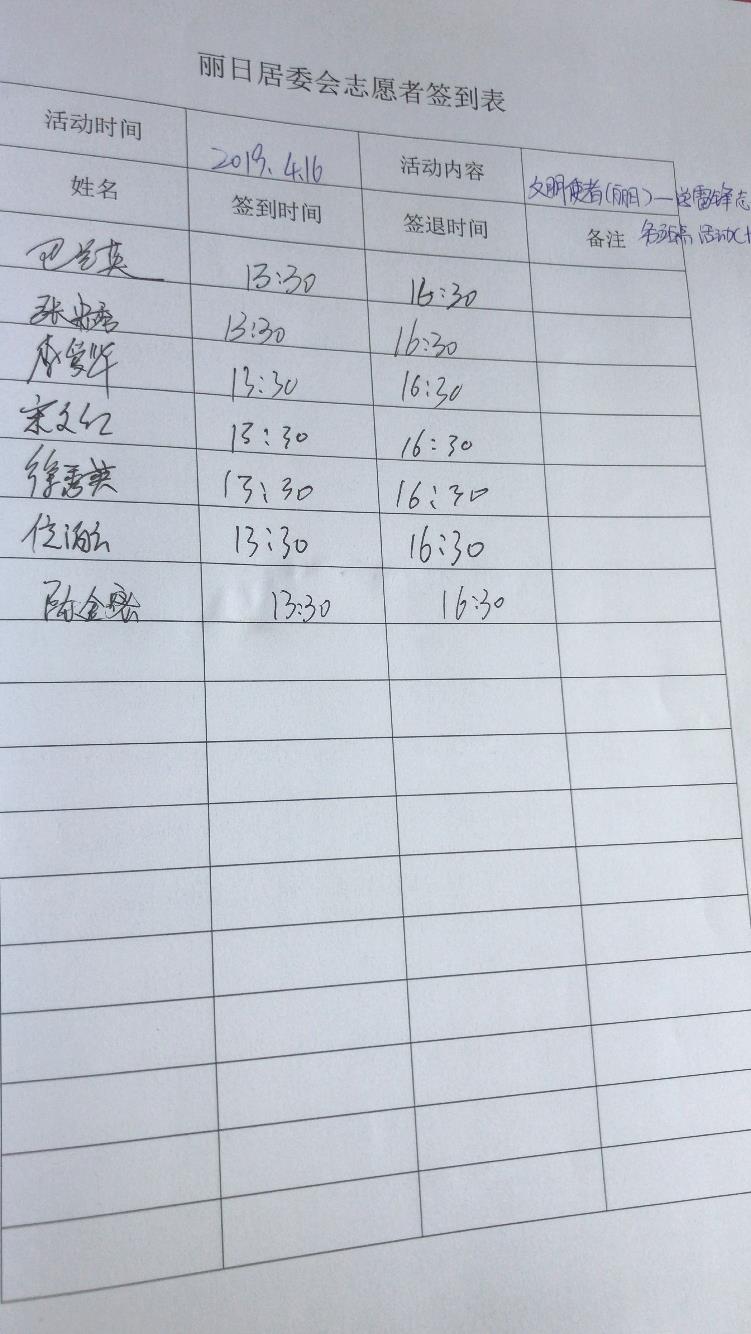 丽日居委会志愿者签到表
活动时间 2019.4.16 活动内容 文明使者(丽日)一学雷锋志
姓名 签到时间 签退时间 备注 活动
英 13:30 16:30
张 秀 13:30 16:30
李爱华 13:30 16:30
宋文红 13:30 16:30
徐秀英 13:30 16:30
13:30 16:30
陈金 13:30 16:30